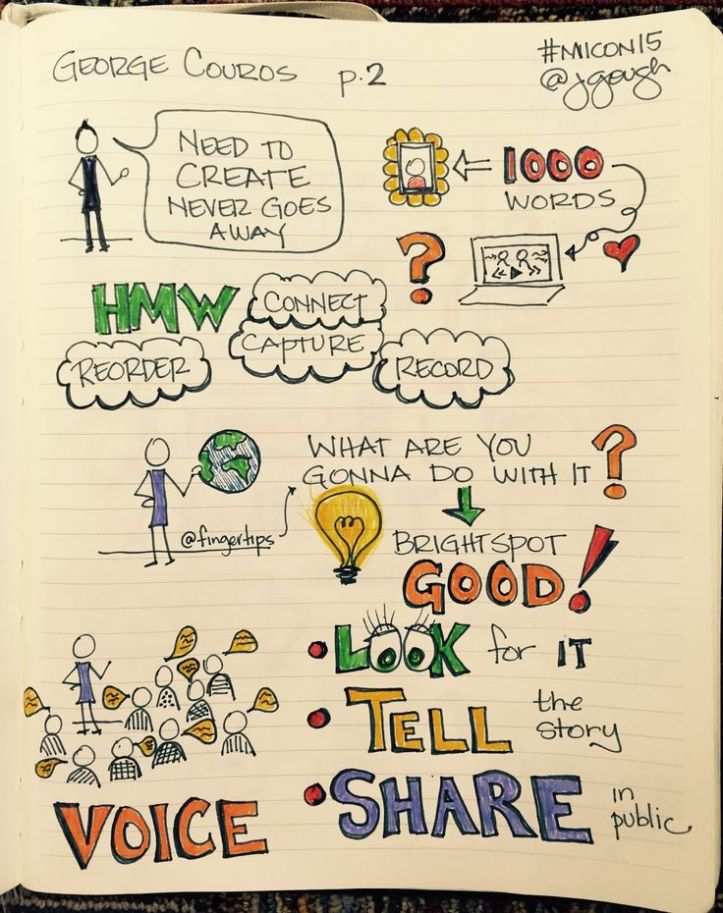 GEORGE COUROS p.2
#MICON15
@jgough
NEED TO
CREATE
NEVER GOES
AWAY
1000
WORDS
?
HMW
CONNECT
CAPTURE
REORDER
RECORD
WHAT ARE YOU
GONNA DO WITH IT?
@fingertips
BRIGHTSPOT
GOOD!
• LOOK for IT
• TELL the
story
• SHARE in
public
VOICE